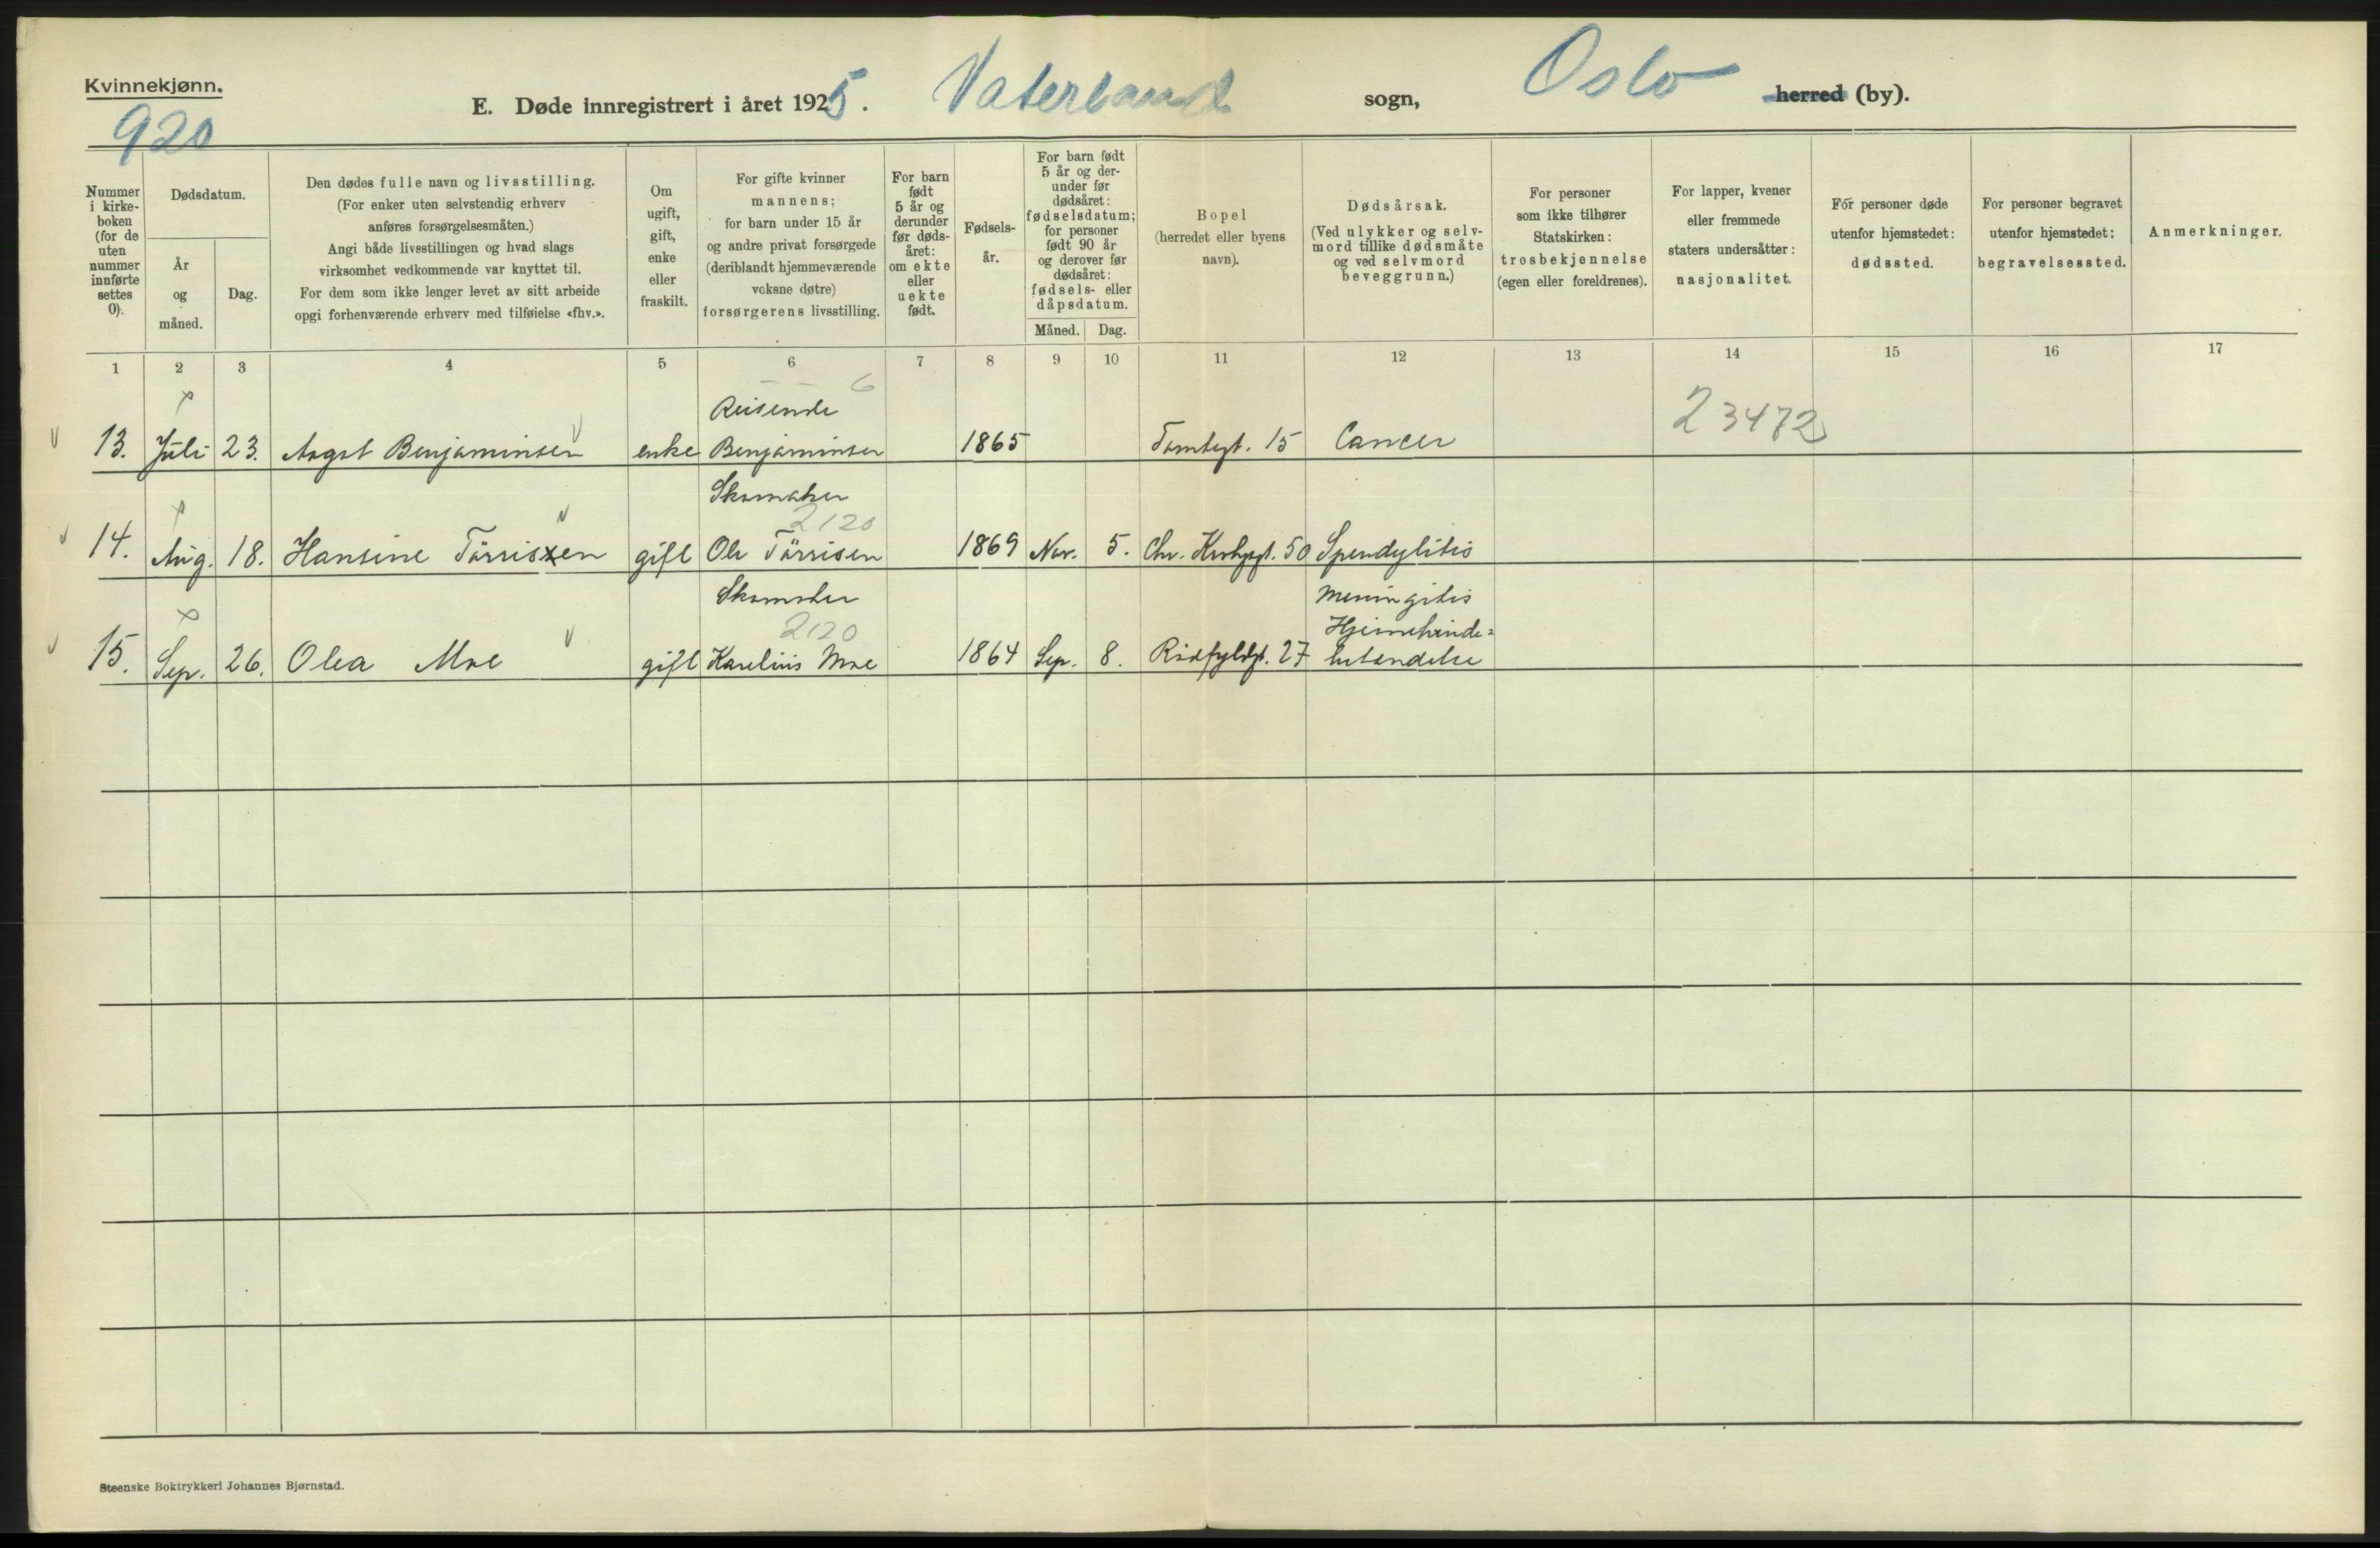 Kvinnekjønn.
920
E. Døde innregistrert i året 1925. Vaterland sogn, Oslo herred (by).
Nummer i kirke-boken (for de uten nummer innførte settes 0).
Dødsdatum.
År og måned.
Dag.
Den dødes fulle navn og livsstilling.
(For enker uten selvstendig erhverv
anføres forsørgelsesmåten.)
Angi både livsstillingen og hvad slags
virksomhet vedkommende var knyttet til.
For dem som ikke lenger levet av sitt arbeide
opgi forhenværende erhverv med tilføielse «fhv.».
Om ugift, gift, enke eller fraskilt.
For gifte kvinner
mannens;
for barn under 15 år
og andre privat forsørgede
(deriblandt hjemmeværende
voksne døtre)
forsørgerens livsstilling.
For barn født 5 år og derunder før døds-året: om ekte eller uekte født.
Fødsels-år.
For barn født
5 år og der-
under før
dødsåret:
fødselsdatum;
for personer
født 90 år
og derover før
dødsåret:
fødsels- eller
dåpsdatum.
Måned. Dag.
Bopel
(herredet eller byens
navn).
Dødsårsak.
(Ved ulykker og selv-
mord tillike dødsmåte
og ved selvmord
beveggrunn.)
For personer
som ikke tilhører
Statskirken:
trosbekjennelse
(egen eller foreldrenes).
For lapper, kvener
eller fremmede
staters undersåtter:
nasjonalitet.
For personer døde
utenfor hjemstedet:
dødssted.
For personer begravet
utenfor hjemstedet:
begravelsessted.
Anmerkninger.
1 2 3 4 5 6 7 8 9 10 11 12 13 14 15 16 17
6
Reisende
23472
13. Juli 23. Aagot Benjaminsen enke Benjaminsen 1865 Tomtegt. 15 Cancer
Skomaker
2120
14. Aug. 18. Hansine Tørrisen gift Ole Tørrisen 1869 Nov. 5. Chr. Krohgsgt. 50 Spondylitis
Skomaker Meningitis
2120 Hjernehinde=
15. Sep. 26. Olea Moe gift Karelius Moe 1864 Sep. 8. Ridfyldgt. 27 betændelse
Steenske Boktrykkeri Johannes Bjørnstad.